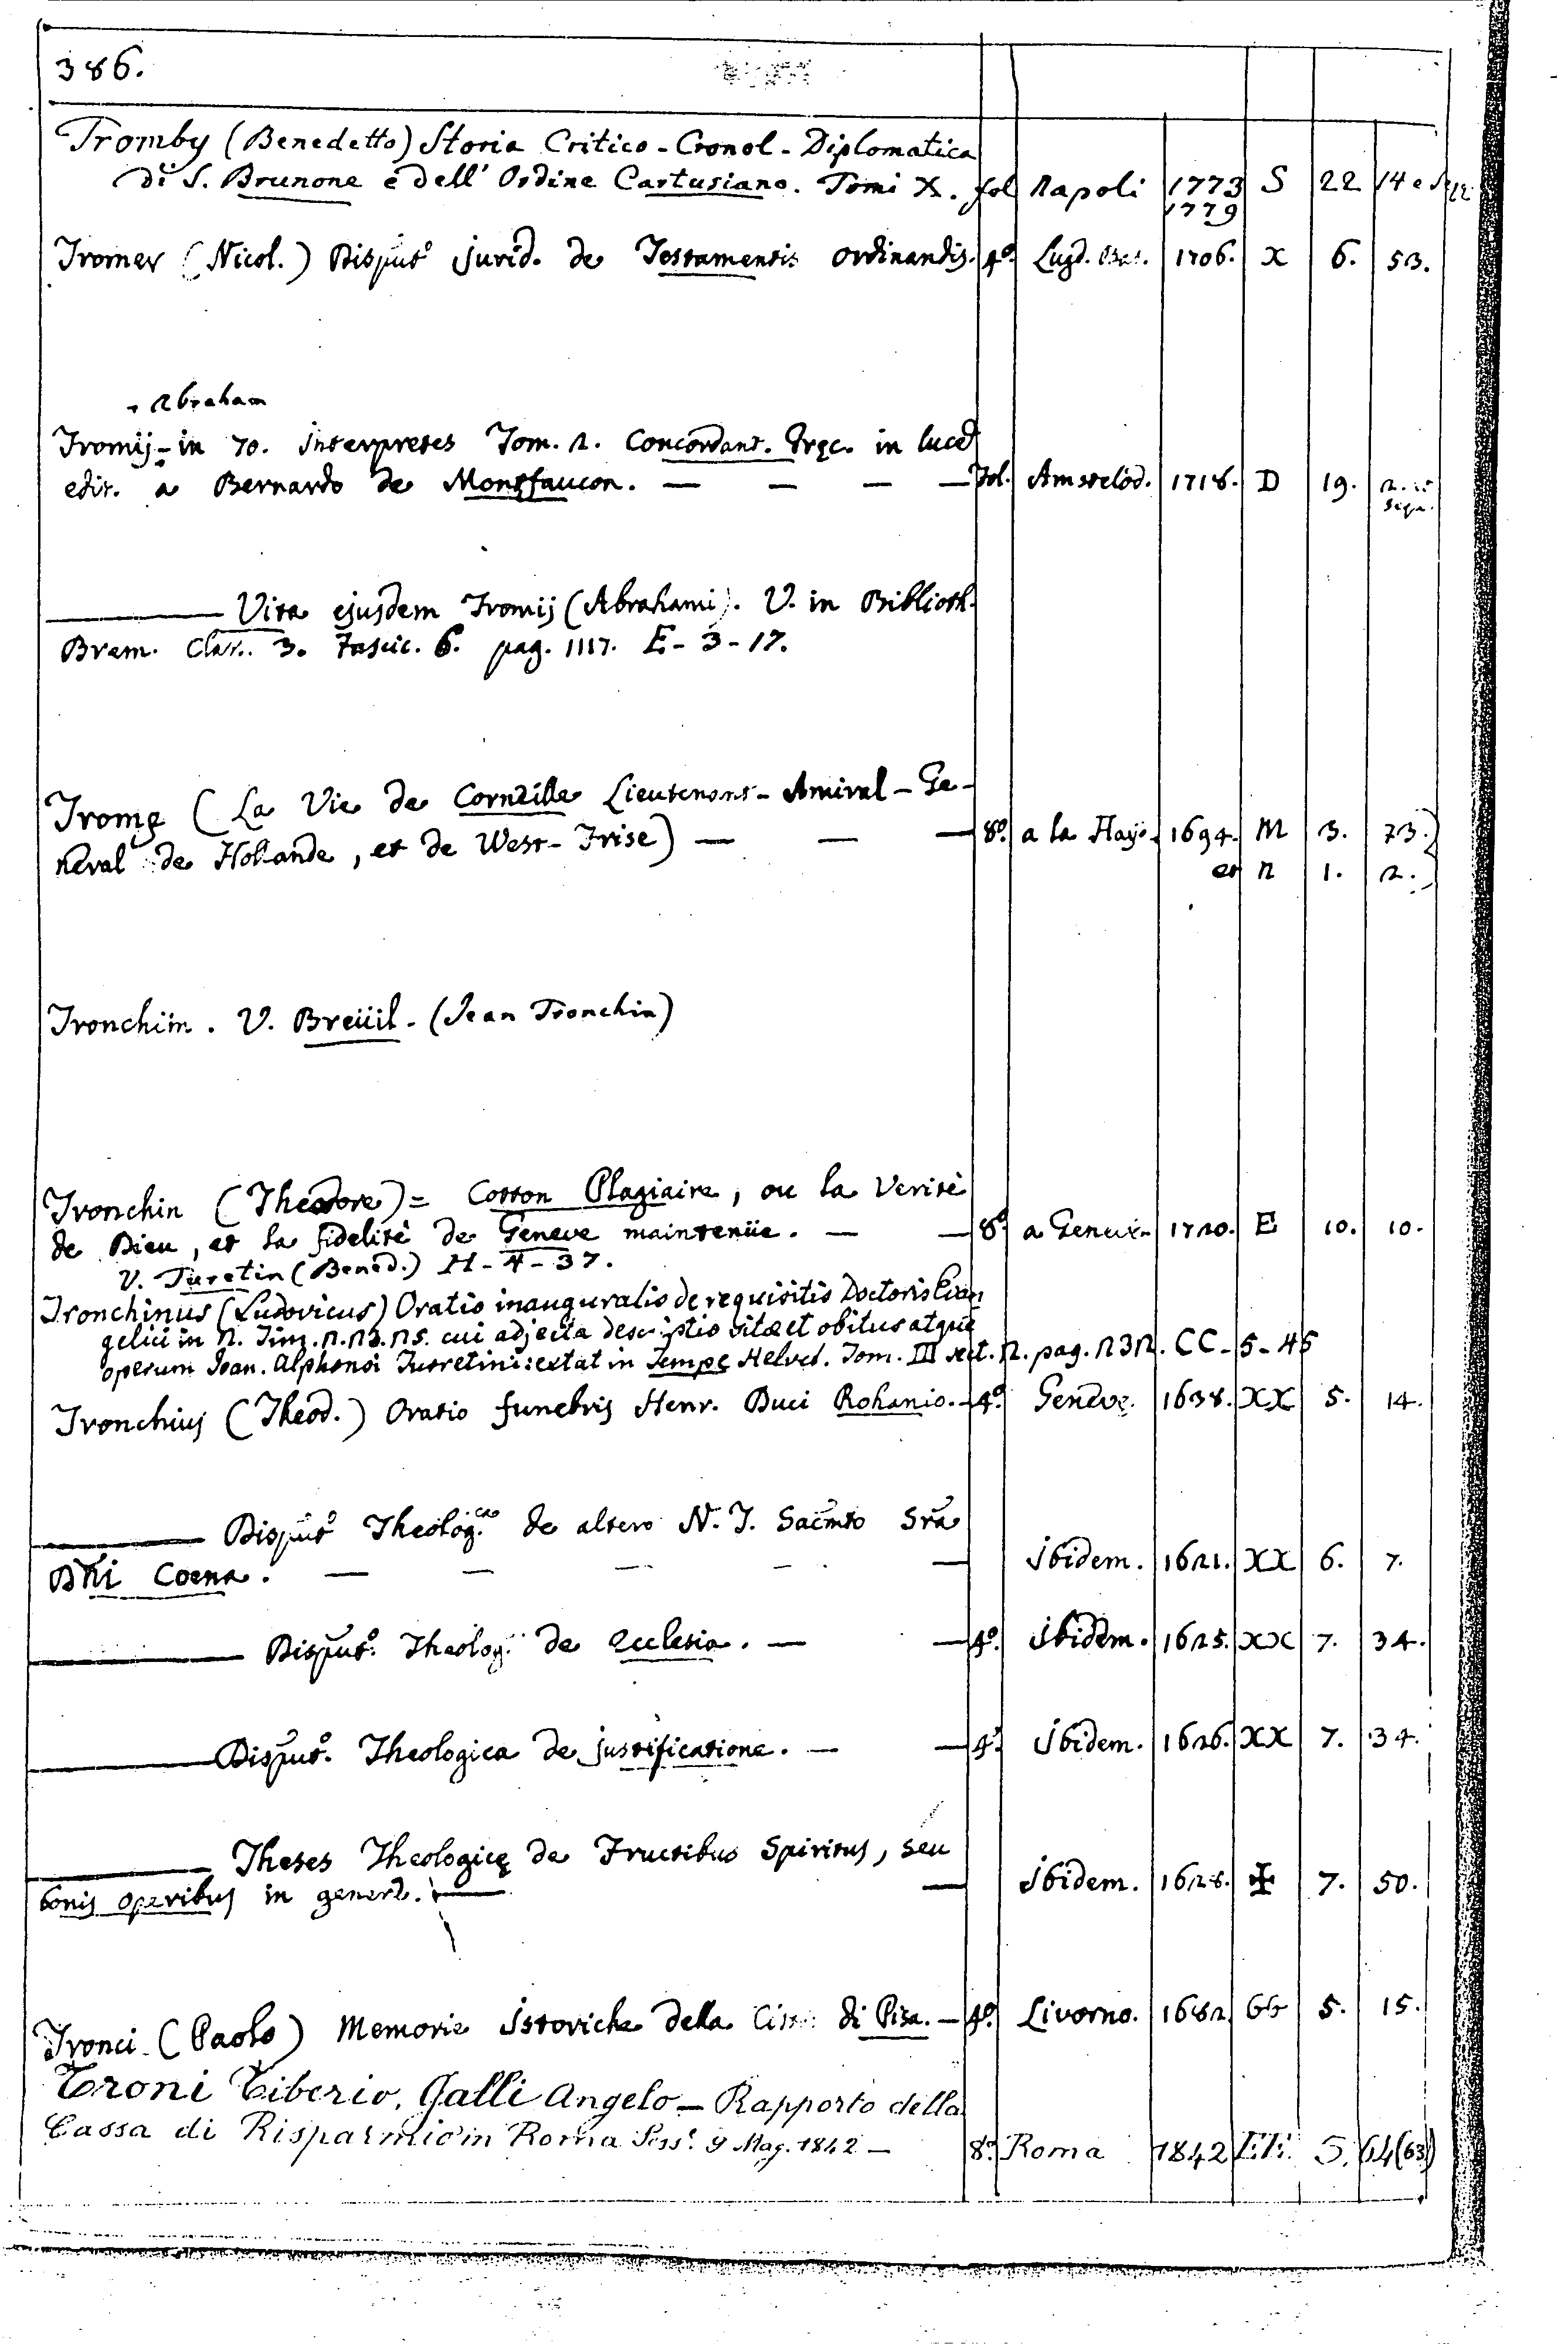 386.
Tromby (Benedetto) Storia Critico - Cronol - Diplomatica
di S. Brunone e dell' Ordine Cartusiano. Tomi X. fol Napoli 1773 S 22 14 e
1779
Tromer (Nicol.) Disput.º jurid. de Testamentis ordinandis. 4º. Lugd. Bat. 1706. X 6. 53.
Abraham
Tromij in 70. interpretes Tom. 2. Concordant. Gręc. in lucē
edit. a Bernardo de Montfaucon. — — — — Fol. Amstelod. 1718. D 19. 2. et
seqq.
——— Vita ejusdem Tromij (Abrahami). V. in Biblioth.
Brem. Class. 3. Fascic. 6. pag. 1117. E - 3 - 17.
Tromp (La Vie de Corneille Lieutenant - Amiral - Ge-
neral de Hollande, et de West - Frise) — — — 8º. a la Haye. 1694. M 3. 73.
et N 1. 2.
Tronchin. V. Breüil. (Jean Tronchin)
Tronchin (Theodore) = Cotton Plagiaire, ou la Verité
de Dieu, et la fidelité de Geneve maintenüe. — — 8º a Geneve 1720. E 10. 10.
V. Turetin (Bened.) H - 4 - 37.
Tronchinus (Ludovicus) Oratio inauguralis de requisitis Doctoris Evan
gelici in 2. Tim. 2. 23. 25. cui adjecta descriptio vitæ et obitus atque
operum Joan. Alphonsi Turretini: extat in Tempe Helvet. Tom. III sect. 2. pag. 232. CC - 5 - 45
Tronchius (Theod.) Oratio funebris Henr. Duci Rohanio. - 4º. Genevę. 1638. XX 5. 14.
——— Disput.º Theolog.ca de altero N. T. Sacm̃to Sr̃a
Dñi Coena. — — — — — Ibidem. 1621. XX 6. 7.
——— Disput.º Theolog. de Ecclesia. — — 4º. Ibidem. 1625. XX 7. 34.
——— Disput.º Theologica de justificatione. — — 4º. Ibidem. 1626. XX 7. 34.
——— Theses Theologicę de Fructibus Spiritus, seu
bonis operibus in genere. — — Ibidem. 1628. ✠ 7. 50.
Tronci (Paolo) Memorie Istoriche della Città di Pisa. — 4º. Livorno. 1682 GG 5. 15.
Troni Tiberio, Galli Angelo — Rapporto della
Cassa di Risparmio in Roma Sess.e 9 Mag. 1842 — 8º. Roma 1842 5. 64 (63)